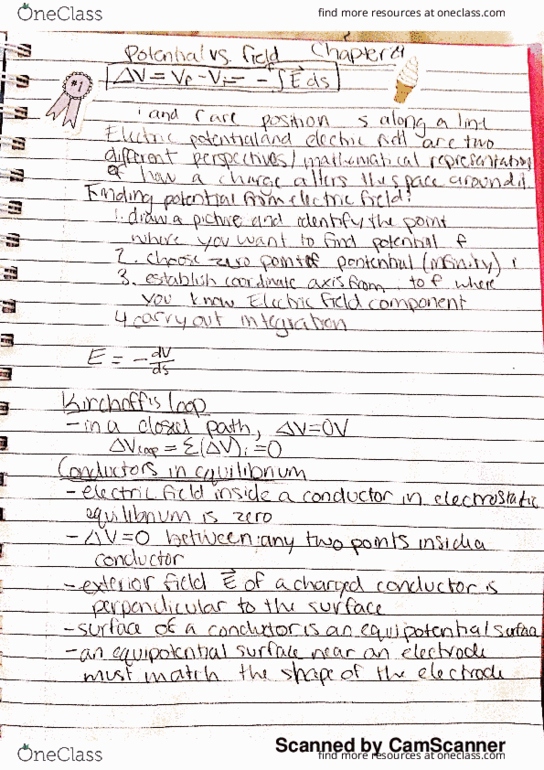 OneClass
find more resources at oneclass.com
Potential vs. field Chapter
#1
ΔV = Vf - Vi = - ∫E⃗ ds
i and f are position s along a line
Electric potential and electric field are two
different perspectives/mathematical representation
of how a charge alters the space around it
Finding potential from electric field:
1. draw a picture and identify the point
where you want to find potential f
2. choose zero point of pontential (infinity) i
3. establish coordinate axis from i to f where
you know Electric field component
4 carry out integration
E = - dV/ds
Kirchoff's loop
- in a closed path, ΔV=0V
ΔVloop = Σ(ΔV)i = 0
Conductors in equilibrium
- electric field inside a conductor in electrostatic
equilibrium is zero
- ΔV=0 between any two points inside a
conductor
- exterior field E⃗ of a charged conductor is
perpendicular to the surface
- surface of a conductor is an equipotential surface
- an equipotential surface near an electrode
must match the shape of the electrode
Scanned by CamScanner
OneClass
find more resources at oneclass.com